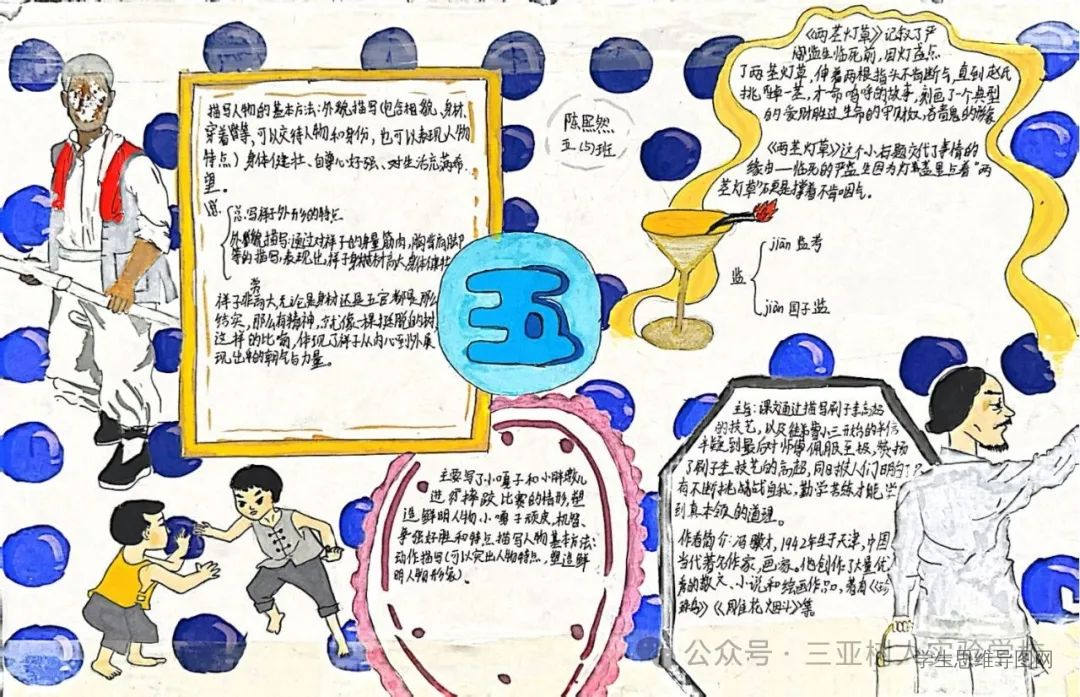 描写人物的基本方法:外貌描写(包含相貌、身材、
穿着等,可以交待人物和身份,也可以表现人物
特点)身体健壮、自尊心好强、对生活充满希
望。
总写样子外形的特点
外貌描写:通过对样子的身量筋肉,胸背底脚
等的描写,表现出,样子身材高大身体健壮
样子非常高大无论是身材还是五官都是那么
结实,那么有精神,就像一棵挺脱的树,
这样的比喻,体现了样子从内心到外展
现出来的朝气与力量。
陈熙然
五(5)班
五
《两茎灯草》记叙了严
监生临死前,因灯盏点
了两茎灯草,伸着两根指头不肯断气,直到赵氏
挑掉一茎,才一命呜呼的故事,刻画了一个典型
的爱财胜过生命的守财奴,吝啬鬼的形象
《两茎灯草》这个小标题交代了事情的
缘由——临死的严监生因为灯盏里点着"两
茎灯草"硬是撑着不肯咽气。
监
jiān 监考
jiàn 国子监
主要写了小嘎子和小胖墩儿
进行摔跤比赛的情形,塑
造鲜明人物,小嘎子顽皮,机智、
争强好胜和特点描写人物基本方法:
动作描写(可以突出人物特点,塑造鲜
明人物形象)。
主旨:课文通过描写刷子李高超
的技艺,以及徒弟曹小三开始的半信
半疑到最后对师傅佩服至极,赞扬
了刷子李技艺的高超,同时报人们明白了只
有不断挑战自我,勤学苦练才能学
到真本领的道理。
作者简介:冯骥才,1942年生于天津,中国
当代著名作家,画家。他创作了大量优
秀的散文、小说和绘画作品,著有《珍
珠鸟》《雕花烟斗》等
公众号·三亚
学生思维导图网